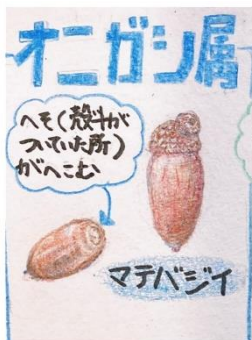 オニガシ属
へそ(殻斗が
ついていた所)
がへこむ
マテバジイ